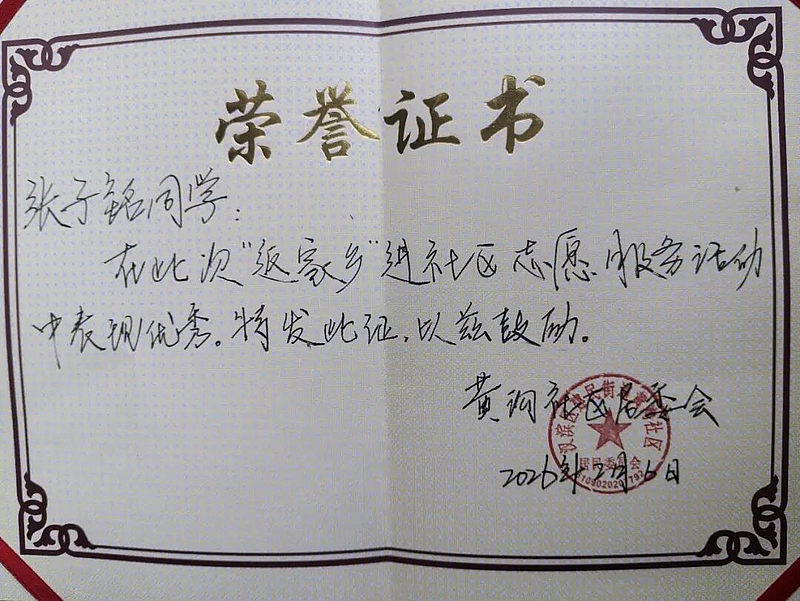 荣誉证书
张子铭同学:
在此次"返家乡"进社区志愿服务活动
中表现优秀。特发此证,以兹鼓励。
黄沟社区居委会
2026年2月6日
汉滨区建民街道 社区
居民委员会